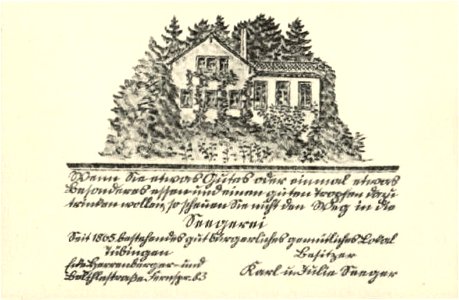 Wenn Sie etwas Gutes oder einmal etwas
Besonderes essen und einen guten Tropfen dazu
trinken wollen, so scheuen Sie nicht den Weg in die
Seegerei
Seit 1865 bestehendes gut bürgerliches gemütliches Lokal
Tübingen
Ecke Herrenberger- und
Belthlestraße. Fernspr. 83
Besitzer
Karl u. Julie Seeger